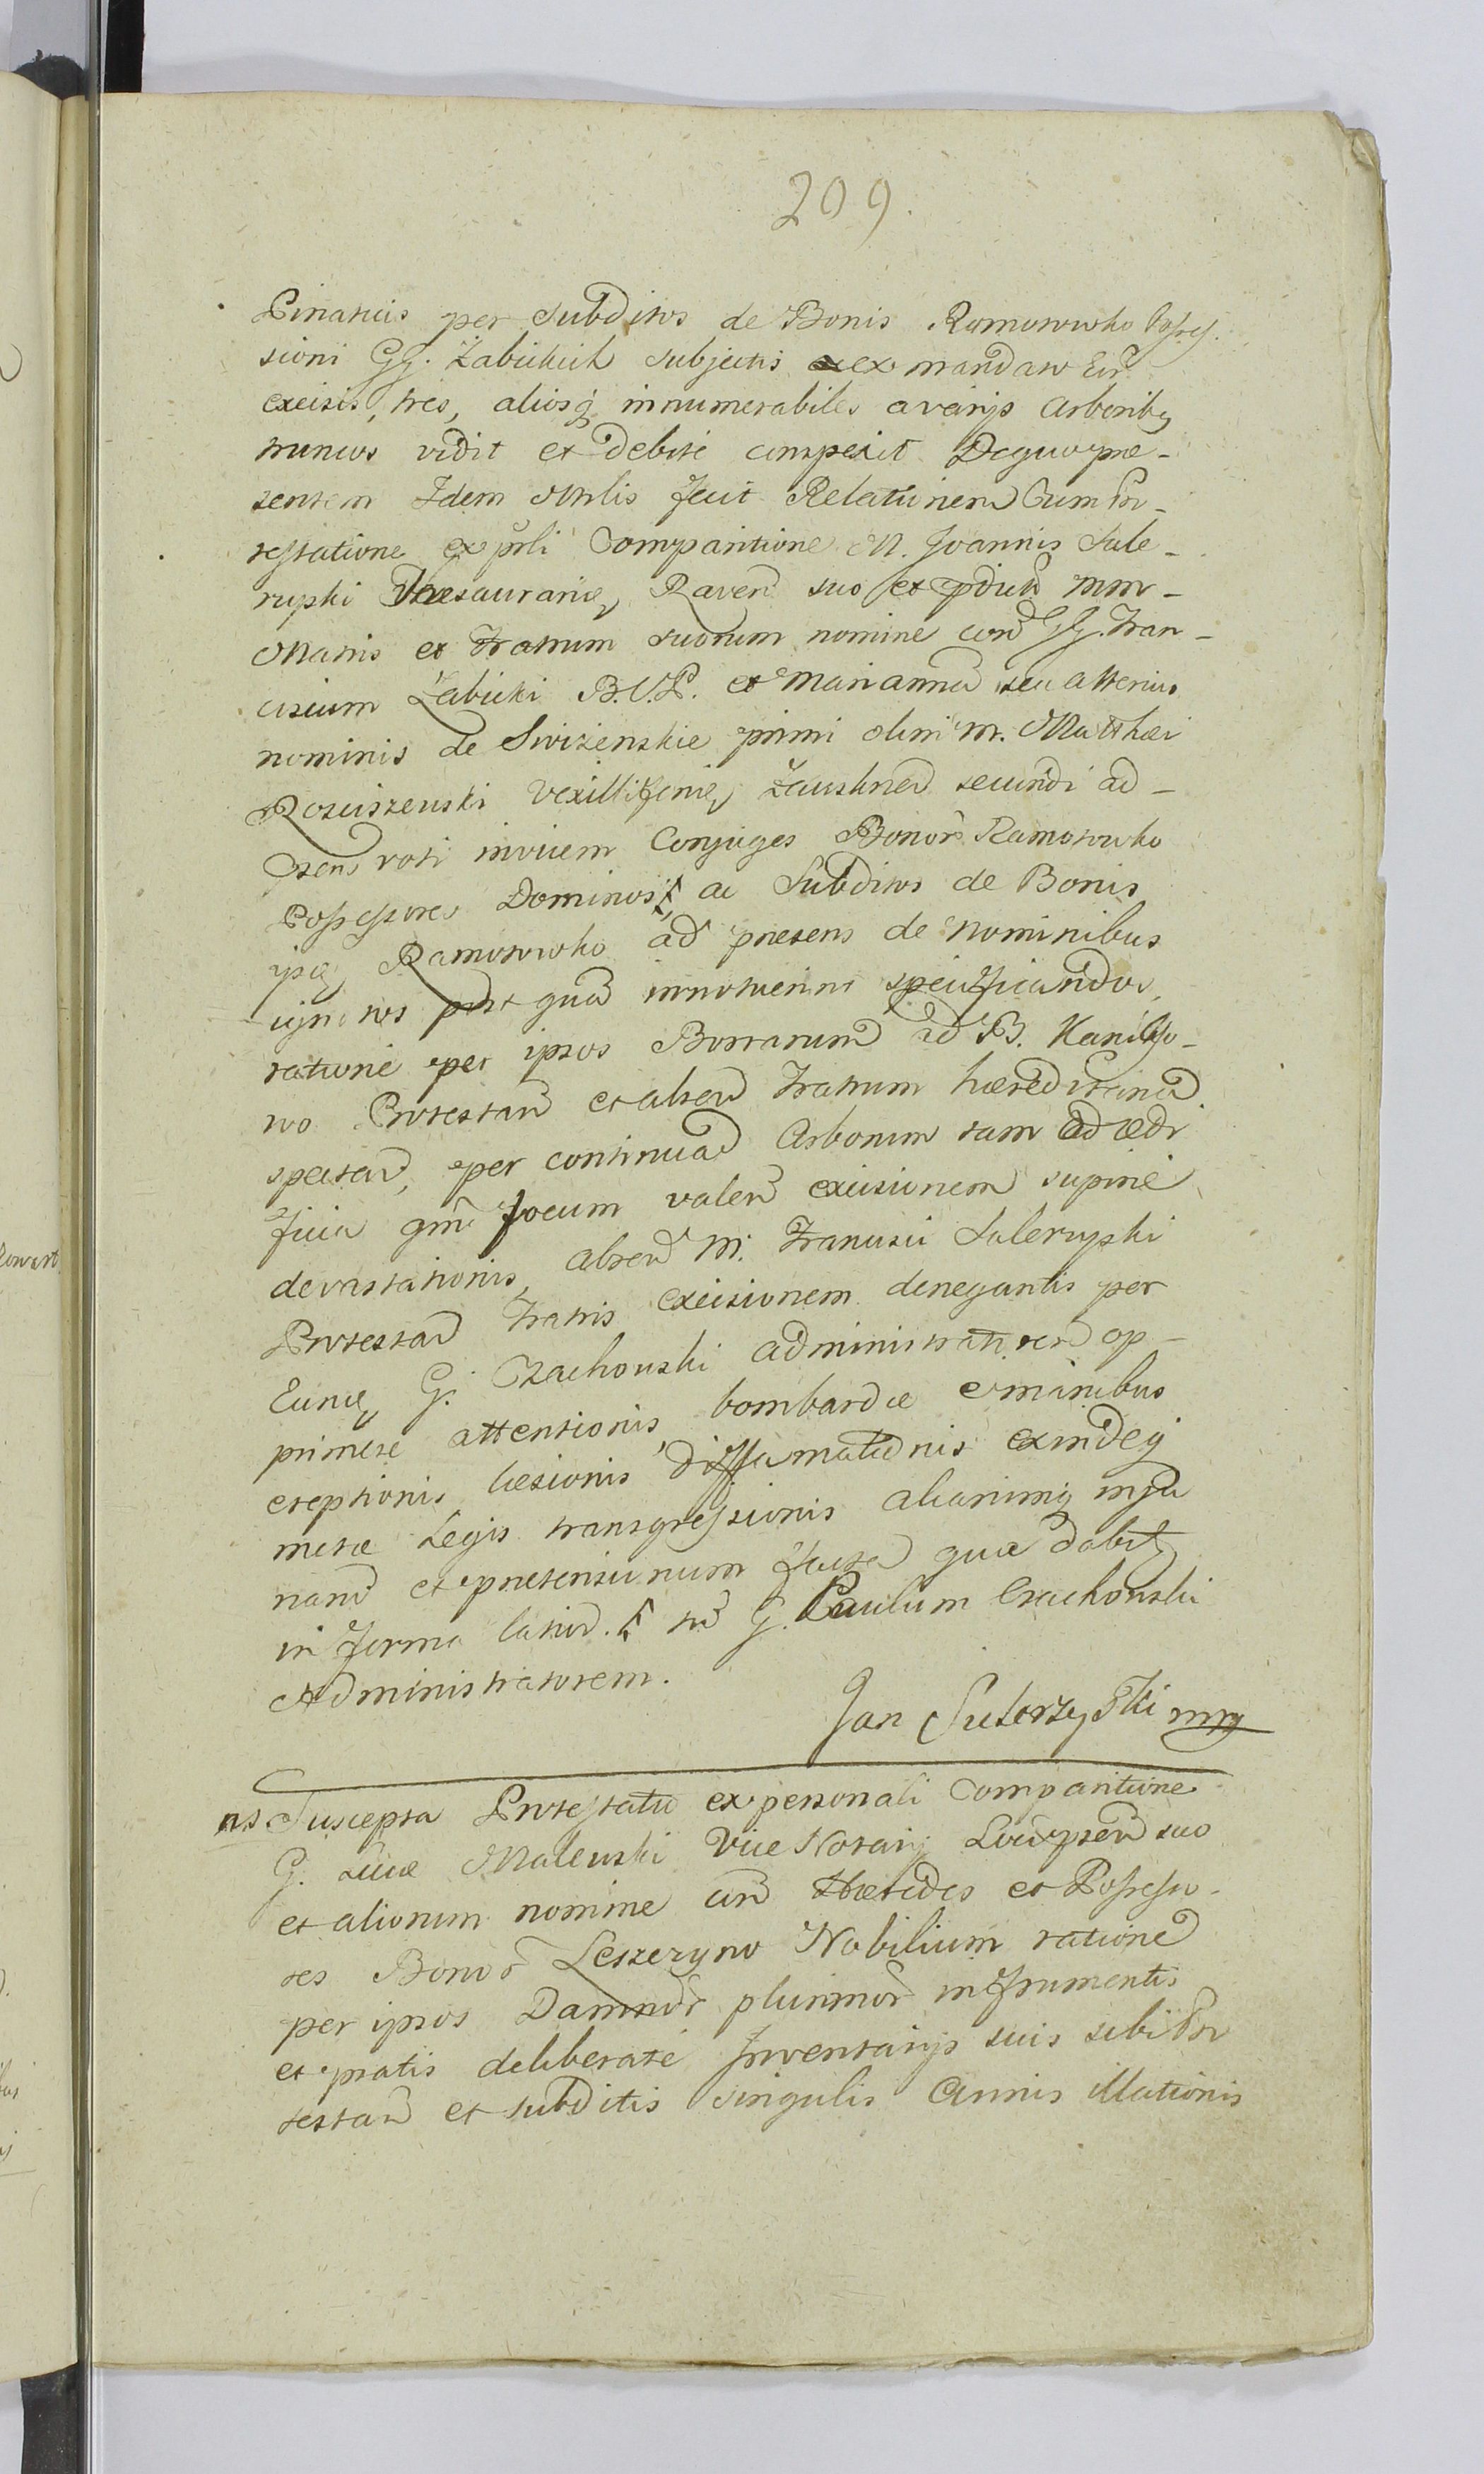 209.
Pinaticis per Subditos de Bonis Ramotowko Posses-
sioni GG. Zabickich subjectis ex mandato Eor
excisis, tres, aliosq innumerabiles a varijs Arboribq
truncos vidit et debite conspexit De quo prae-
sentem Idem Mrlis fecit Relationem Cum Pro-
testatione ex prli Comparitione M. Joannis Sule-
rzyski Thesaurarij Raven suo et
Matris et Fratrum suorum nomine con GG. Fran-
ciscum Zabicki B.C.P. et Mariannam seu alterius
nominis de Swizenskie primi olim M. Matthaei
Rosciszewski Vexilliferi secundi ad-
psens voti invicem Conjuges Bonor Ramotowko
Possessores Dominos ac Subditos de Bonis
ipsq Ramotowko ad praesens de nominibus
ignotos post quam innotuerint specificandos,
ratione per ipsos Borrarum ad B.
wo Protestan et absen Fratrum haereditarie
spectan, per continuam Arborum tam ad aedi
ficia qm focum valen excisionem supine
devastationis, absen M. Francisci Sulerzyski
Protestan Fratris excisionem denegantis per
Eundq G. Czachowski administratorem op-
primere attentionis, bombardae e manibus
ereptionis laesionis diffamationis exindeq
metae Legis transgressionis aliarumq inju
riarum et praetensionum factam quae dabitr
in forma latior. tu G. Paulum Czachowski
Administratorem.
Jan Sulerzyski mp
ns Suscepta Protestatio ex personali Comparitione
G. Lucae Malewski Vice Notarij suo
et aliorum nomine con Haeredes et Possesso-
res Bonor Leszczyno Nobilium ratione
per ipsos Damnor plurimor in frumentis
et pratis deliberate Inventarijs suis sibi Pro
testan et subditis singulis Annis illationis